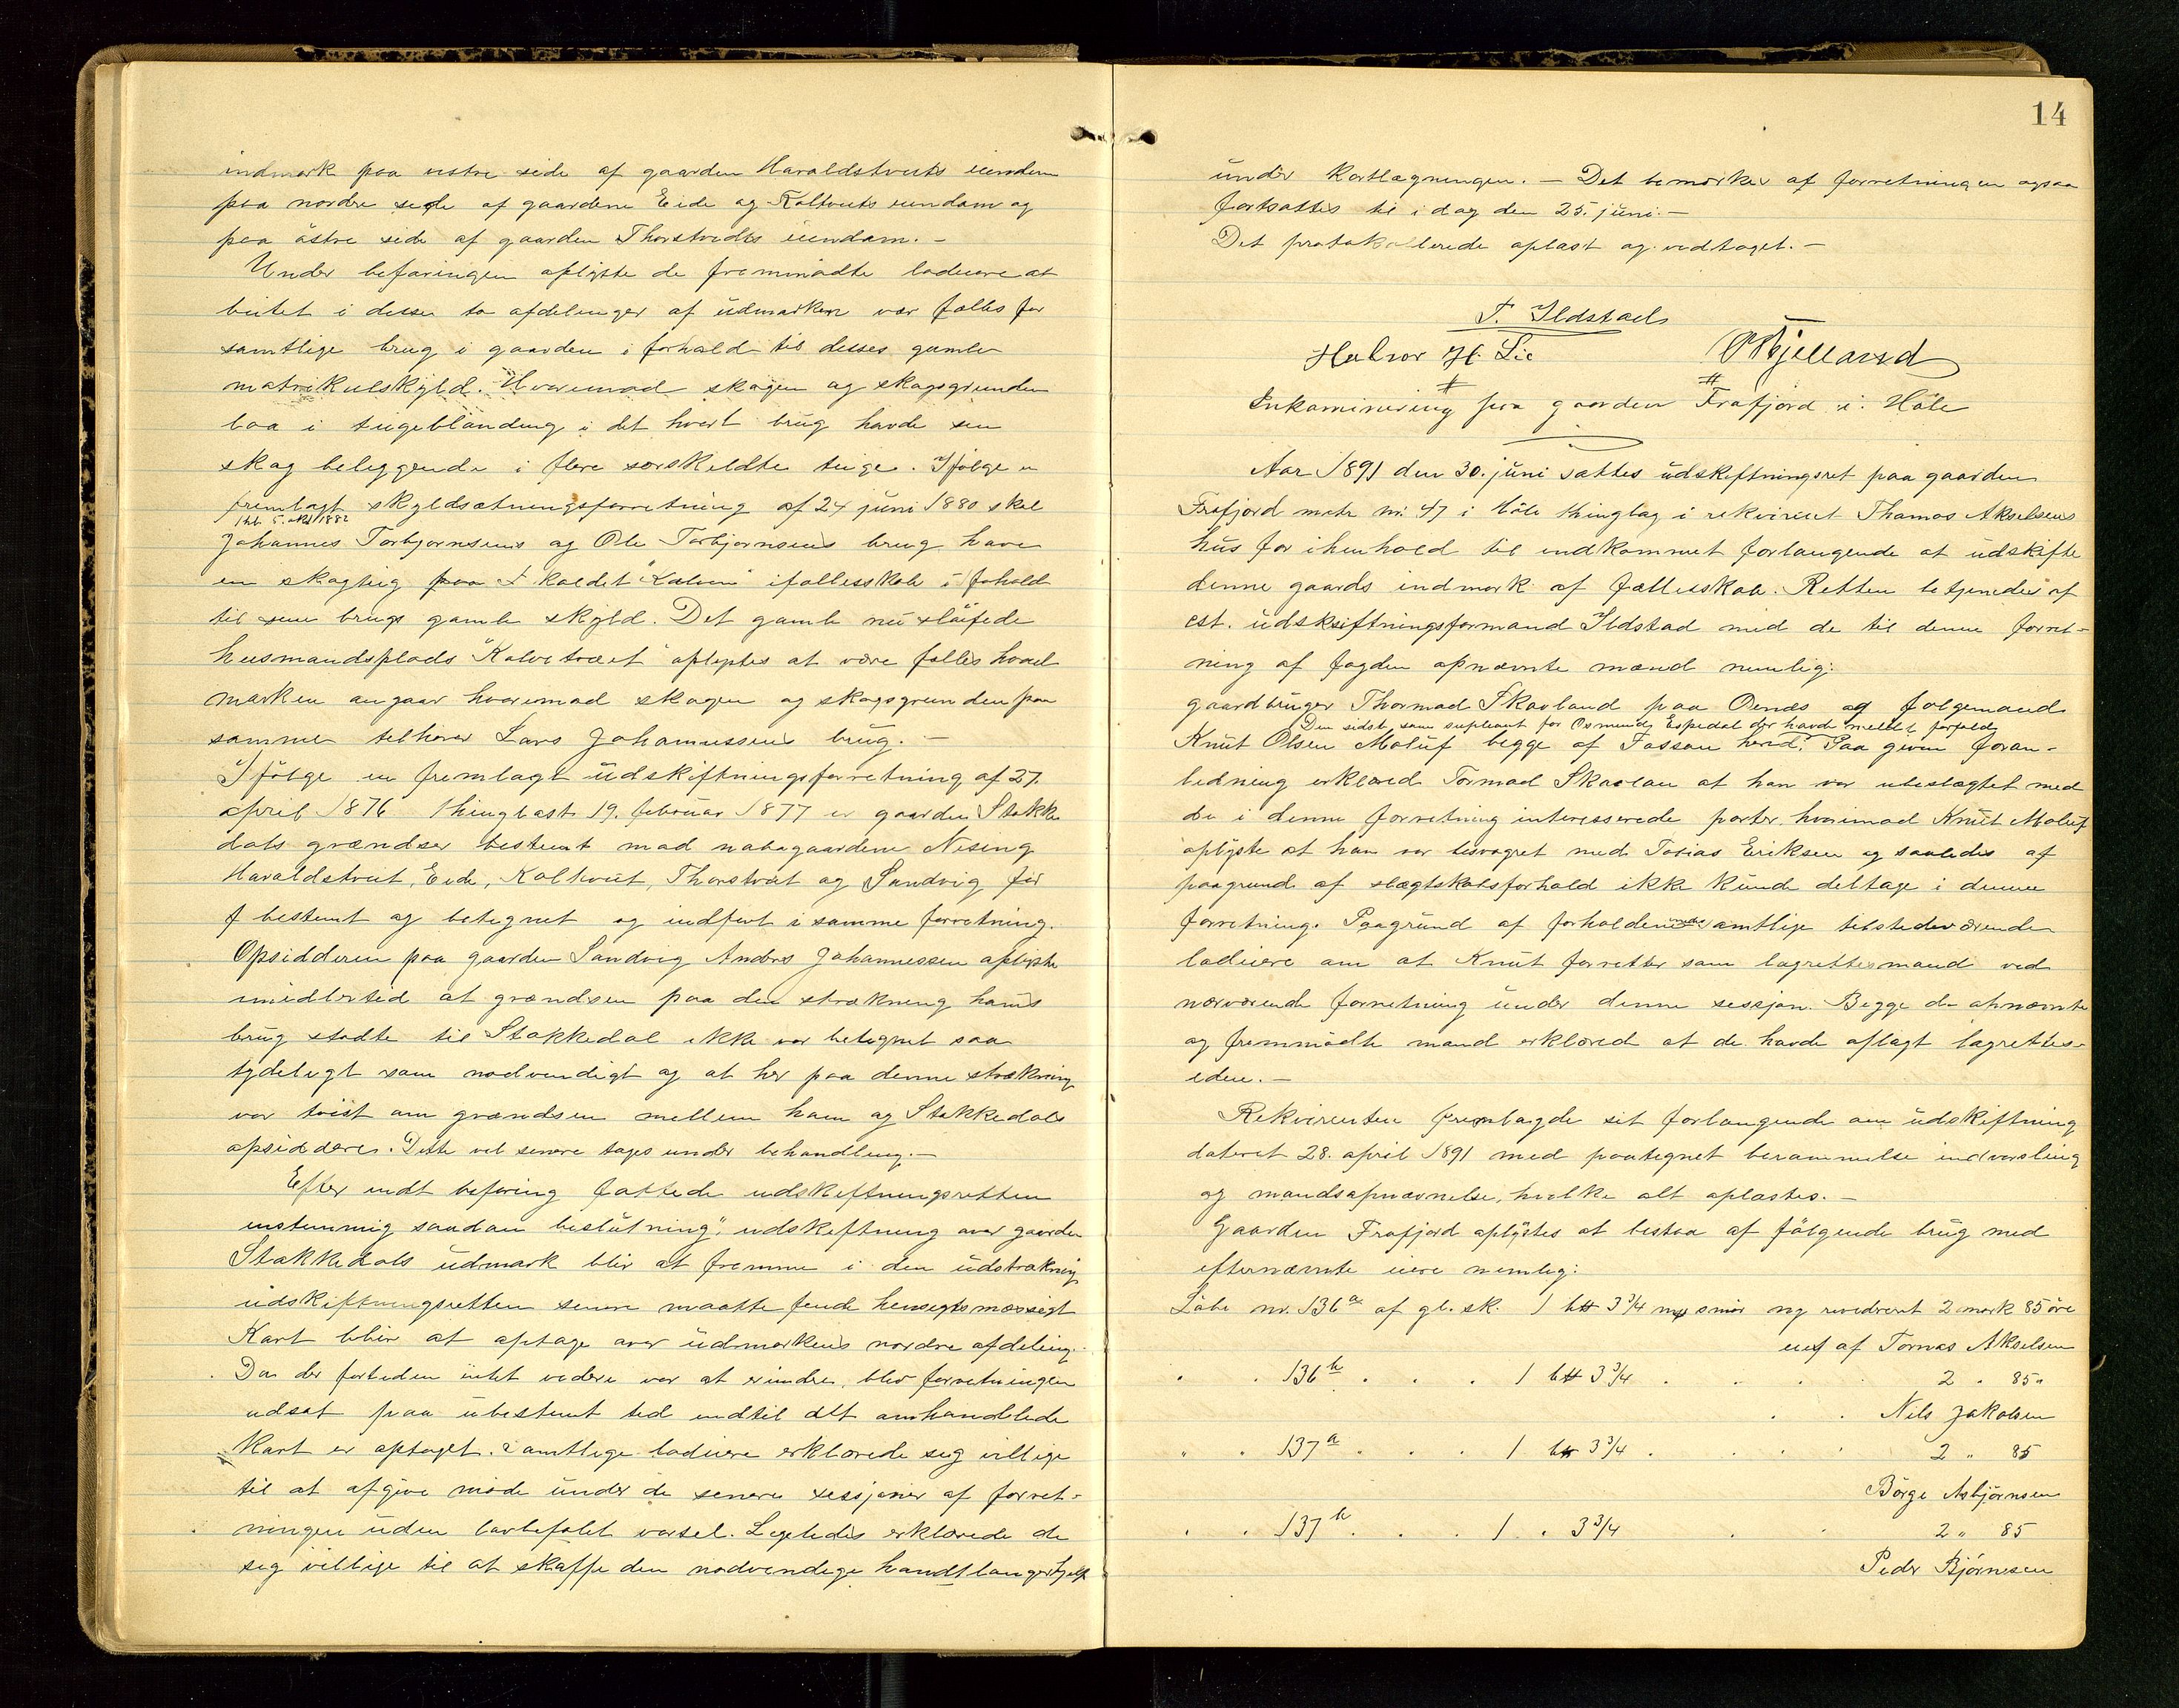 indmark paa vestre side af gaarden Haraldstveits eiendom
paa nordre side af gaardene Eide og Koltveits eiendom og
paa östre side af gaarden Thorstvedts eiendom. -
Under befaringen oplyste de fremmødte lodeiere at
beitet i disse to afdelinger af udmarken var fælles for
samtlige brug i gaarden i forhold til desses gamle
matrikulskyld. Hvorimod skogen og skogsgrunden
laa i teigeblanding i det hvert brug havde sin
skog beliggende i flere særskildte teige. Ifølge en
fremlagt skyldsætningsforretning af 24 juni 1880 skal
thl. 5. okt 1882
Johannes Torbjørnsens og Ole Torbjørnsens brug have
en skogteig kaldet "Kalven" i fællesskab i fohold
til sine brugs gamle skyld. Det gamle nu sløifede
husmandsplads "Kalvetræet" oplystes at være fælles hvad
marken angaar hvorimod skogen og skogsgrunden paa
samme tilhører Lars Johannessens brug. -
Ifølge en fremlagt udskiftningsforretning af 27.
april 1876 thinglæst 19. februar 1877 er gaarden Stakke
dals grændser bestemt mod nabogaardene Nising
Haraldstveit, Eide, Koltveit, Thorstveit og Sandvig før
bestemt og betegnet og indført i samme forretning.
Opsidderen paa gaarden Sandvig Anders Johannessen oplyste
imidlertid at grændsen paa den strækning hans
brug stødte til Stakkedal ikke var betegnet saa
tydeligt som nødvendigt og at her paa denne strækning
var tvist om grændsen mellem ham og Stakkedals
opsiddere. Dette vil senere tages under behandling. -
Efter endt befaring fattede udskiftningsretten
enstemmig saadan beslutning": udskiftning over gaarden
Stakkedals udmark blir at fremme i den udstrækning
udskiftningsretten senere maatte finde hensigtsmæssigt
Kart blir at optage over udmarkens nordre afdeling.
Da der forteden intet videre var at erindre, blev forretningen
udsat paa ubestemt tid indtil det omhandlede
kart er optaget. Samtlige lodeiere erklærede sig villige
til at afgive møde under de senere sessjoner af forret-
ningen uden lovbefalet varsel. Ligeledes erklærede de
sig villige til at skaffe den nødvendige handtlangerhjelp
14
under kortlægningen. - Det bemærkes at forretningen ogsaa
fortsattes til i dag den 25. juni. -
Det protokollerede oplæst og vedtaget. -
T. Ildstad
Halvor H. Lie OKjelland
#  #
Inkaminering paa gaarden Frafjord i Høle
Aar 1891 den 30. juni sattes udskiftningsret paa gaarden
Frafjord matr nr. 47 i Høle thinglag i rekvirent Thomas Akselsens
hus for i henhold til indkommet forlangende at udskifte
denne gaards indmark af fællesskab. Retten betjenedes af
cst. udskiftningsformand Ildstad med de til denne forret-
ning af fogden opnævnte mænd nemlig:
gaardbruger Thormod Skavland paa Oenæs og følgemand
Den sidste som supleant for Osmund Espedal der havde meldt forfald
Knut Olsen Maluf begge af Fossan herred. Paa given foran-
ledning erklæred Tormod Skavlan at han var ubeslægtet med
de i denne forretning interesserede parter hvorimod Knut Maluf
oplyste at han var besvogret med Tobias Eriksen og saaledes af
paagrund af slægtskabsforhold ikke kunde deltage i denne
forretning. Paagrund af forholdene samtlige tilstedeværende
lodeiere om at Knut forretter som lagrettesmand ved
nærværende forretning under denne sessjon. Begge de opnævnte
og fremmødte mænd erklæred at de havde aflagt lagrettes-
eden. -
Rekvirenten fremlagde sit forlangende om udskiftning
dateret 28. april 1891 med paategnet berammelse indvarsling
og mandsopnævnelse, hvilke alt oplæstes. -
Gaarden Frafjord oplystes at bestaa af følgende brug med
efternævnte eiere nemlig:
Løbe nr. 136a af gl. sk. 1 b# 3 3/4 mk smör og revideret 2 mark 85 öre
eies af Tomas Akselsen
" " 136b " " " 1 b# 3 3/4 " " " " 2 " 85 "
" " Nils Jakobsen
" " 137a " " " 1 b# 3 3/4 " " " " 2 " 85
Börge Asbjörnsen
" " 137b " " " 1 " 3 3/4 " " 2 " 85
Peder Bjørnsen